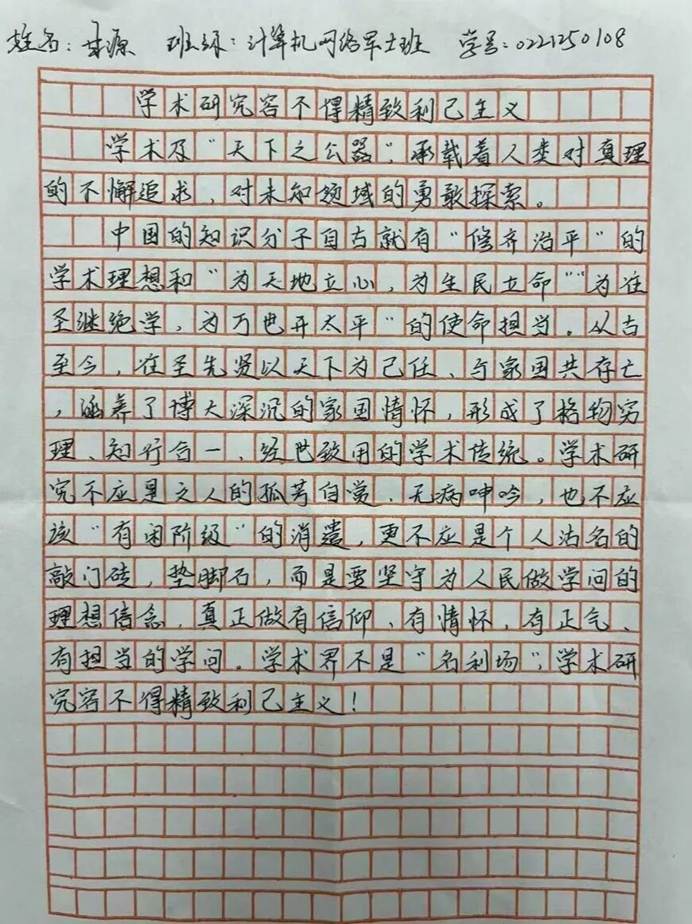 姓名：甘源 班级：计算机网络军士班 学号：0221250108
学术研究容不得精致利己主义
学术乃“天下之公器”，承载着人类对真理
的不懈追求，对未知领域的勇敢探索。
中国的知识分子自古就有“修齐治平”的
学术理想和“为天地立心，为生民立命”“为往
圣继绝学，为万世开太平”的使命担当。从古
至今，往圣先贤以天下为己任、与家国共存亡
，涵养了博大深沉的家国情怀，形成了格物穷
理、知行合一、经世致用的学术传统。学术研
究不应是文人的孤芳自赏、无病呻吟，也不应
该“有闲阶级”的消遣，更不应是个人沽名的
敲门砖，垫脚石，而是要坚守为人民做学问的
理想信念，真正做有信仰、有情怀，有正气、
有担当的学问。学术界不是“名利场”，学术研
究容不得精致利己主义！